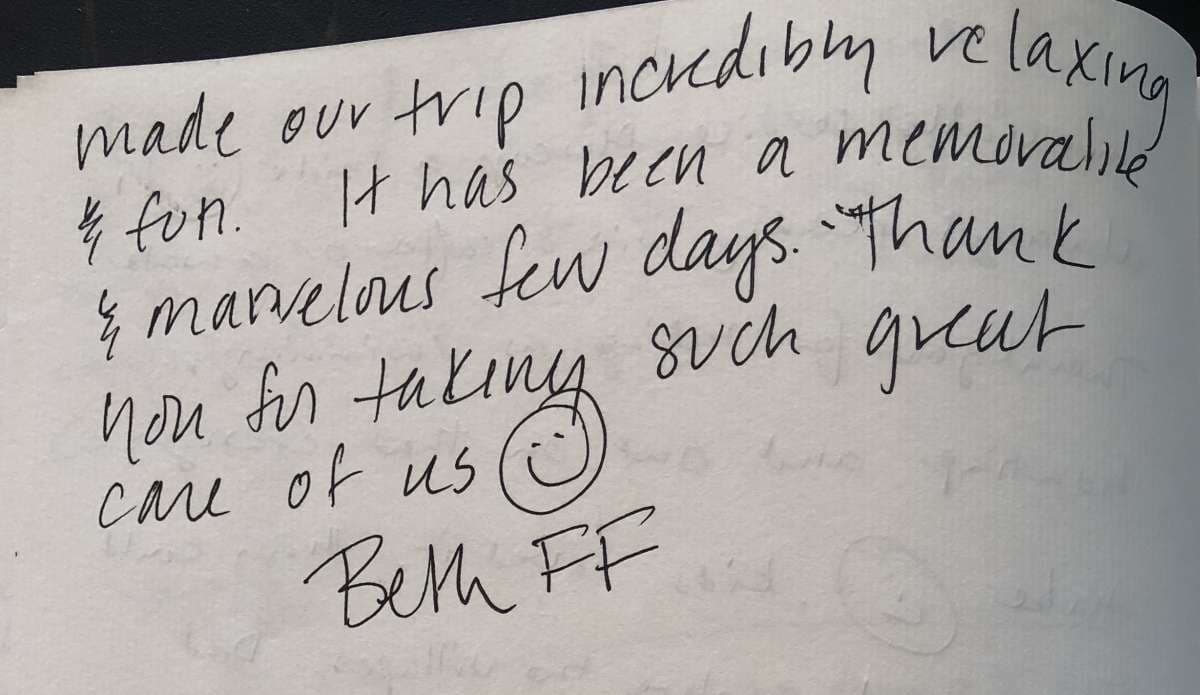 made our trip incredibly relaxing
& fun. It has been a memorable
& marvelous few days. Thank
you for taking such great
care of us
Beth FF